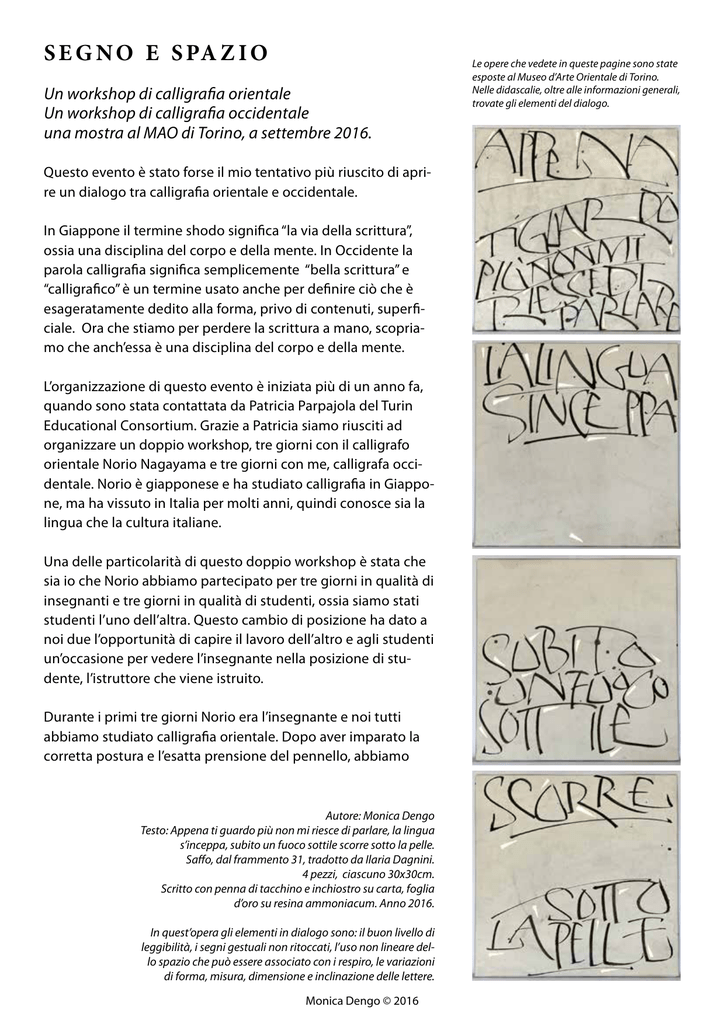 SEGNO E SPAZIO
Un workshop di calligrafia orientale
Un workshop di calligrafia occidentale
una mostra al MAO di Torino, a settembre 2016.
Questo evento è stato forse il mio tentativo più riuscito di apri-
re un dialogo tra calligrafia orientale e occidentale.
In Giappone il termine shodo significa “la via della scrittura”,
ossia una disciplina del corpo e della mente. In Occidente la
parola calligrafia significa semplicemente “bella scrittura” e
“calligrafico” è un termine usato anche per definire ciò che è
esageratamente dedito alla forma, privo di contenuti, superfi-
ciale. Ora che stiamo per perdere la scrittura a mano, scopria-
mo che anch’essa è una disciplina del corpo e della mente.
L’organizzazione di questo evento è iniziata più di un anno fa,
quando sono stata contattata da Patricia Parpajola del Turin
Educational Consortium. Grazie a Patricia siamo riusciti ad
organizzare un doppio workshop, tre giorni con il calligrafo
orientale Norio Nagayama e tre giorni con me, calligrafa occi-
dentale. Norio è giapponese e ha studiato calligrafia in Giappo-
ne, ma ha vissuto in Italia per molti anni, quindi conosce sia la
lingua che la cultura italiane.
Una delle particolarità di questo doppio workshop è stata che
sia io che Norio abbiamo partecipato per tre giorni in qualità di
insegnanti e tre giorni in qualità di studenti, ossia siamo stati
studenti l’uno dell’altra. Questo cambio di posizione ha dato a
noi due l’opportunità di capire il lavoro dell’altro e agli studenti
un’occasione per vedere l’insegnante nella posizione di stu-
dente, l’istruttore che viene istruito.
Durante i primi tre giorni Norio era l’insegnante e noi tutti
abbiamo studiato calligrafia orientale. Dopo aver imparato la
corretta postura e l’esatta prensione del pennello, abbiamo
Autore: Monica Dengo
Testo: Appena ti guardo più non mi riesce di parlare, la lingua
s’inceppa, subito un fuoco sottile scorre sotto la pelle.
Saffo, dal frammento 31, tradotto da Ilaria Dagnini.
4 pezzi, ciascuno 30x30cm.
Scritto con penna di tacchino e inchiostro su carta, foglia
d’oro su resina ammoniacum. Anno 2016.
In quest’opera gli elementi in dialogo sono: il buon livello di
leggibilità, i segni gestuali non ritoccati, l’uso non lineare del-
lo spazio che può essere associato con i respiro, le variazioni
di forma, misura, dimensione e inclinazione delle lettere.
Le opere che vedete in queste pagine sono state
esposte al Museo d’Arte Orientale di Torino.
Nelle didascalie, oltre alle informazioni generali,
trovate gli elementi del dialogo.
APPENA
TI GUARDO
PIÙ NON MI
RIESCE DI
PARLARE
LA LINGUA
S'INCEPPA
SUBITO
UN FUOCO
SOTTILE
SCORRE
SOTTO
LA PELLE
Monica Dengo © 2016